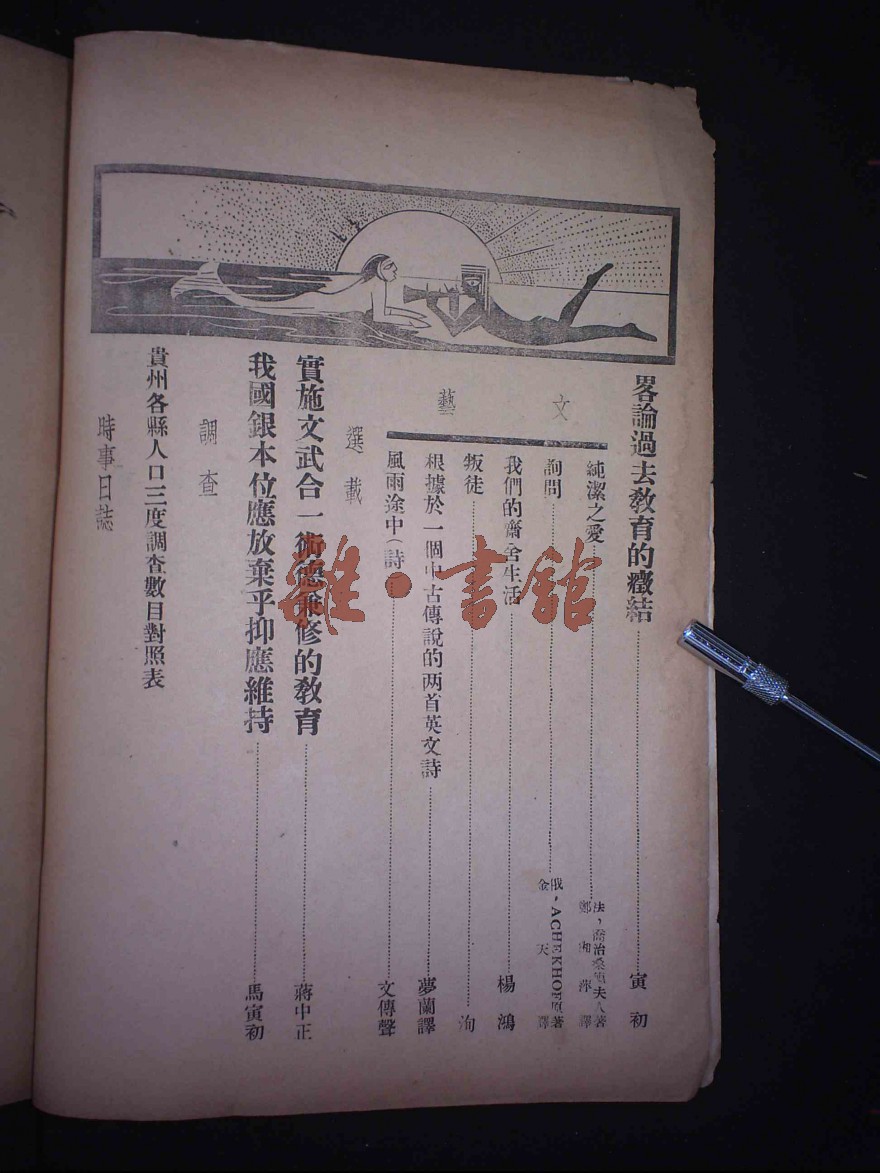 畧論過去敎育的癥結……寅初
文藝
純潔之愛……法，喬治桑夫人著
鄭　譯
詢問……俄、ACHEKHOF原著
金天譯
我們的齋舍生活……楊鴻
叛徒……洵
根據於一個中古傳說的两首英文詩……夢蘭譯
風雨途中（詩）……文傳聲
選載
實施文武合一術德兼修的敎育……蔣中正
我國銀本位應放棄乎抑應維持……馬寅初
調查
貴州各縣人口三度調查數目對照表
時事日誌
雜·書館